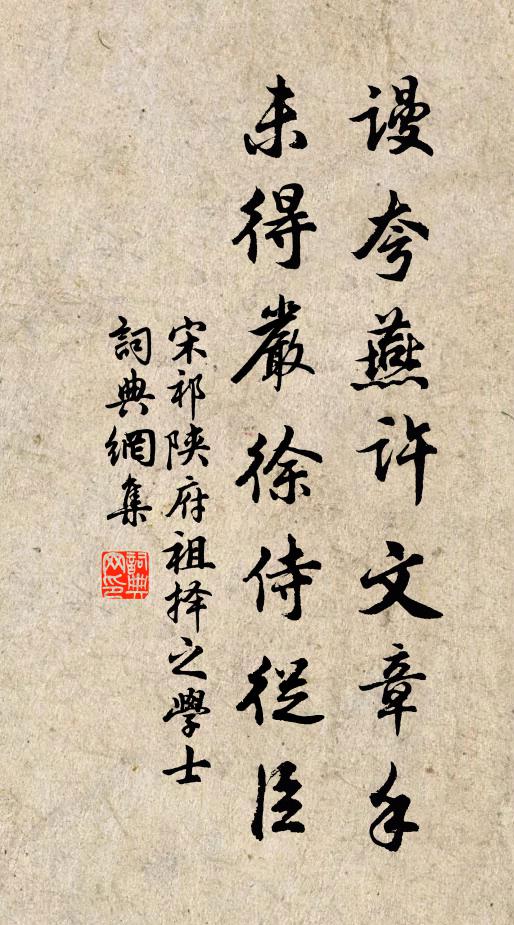 謾夸燕許文章手
未得嚴徐侍從臣
宋祁陝府祖择之學士
詞典網集
詞典网印